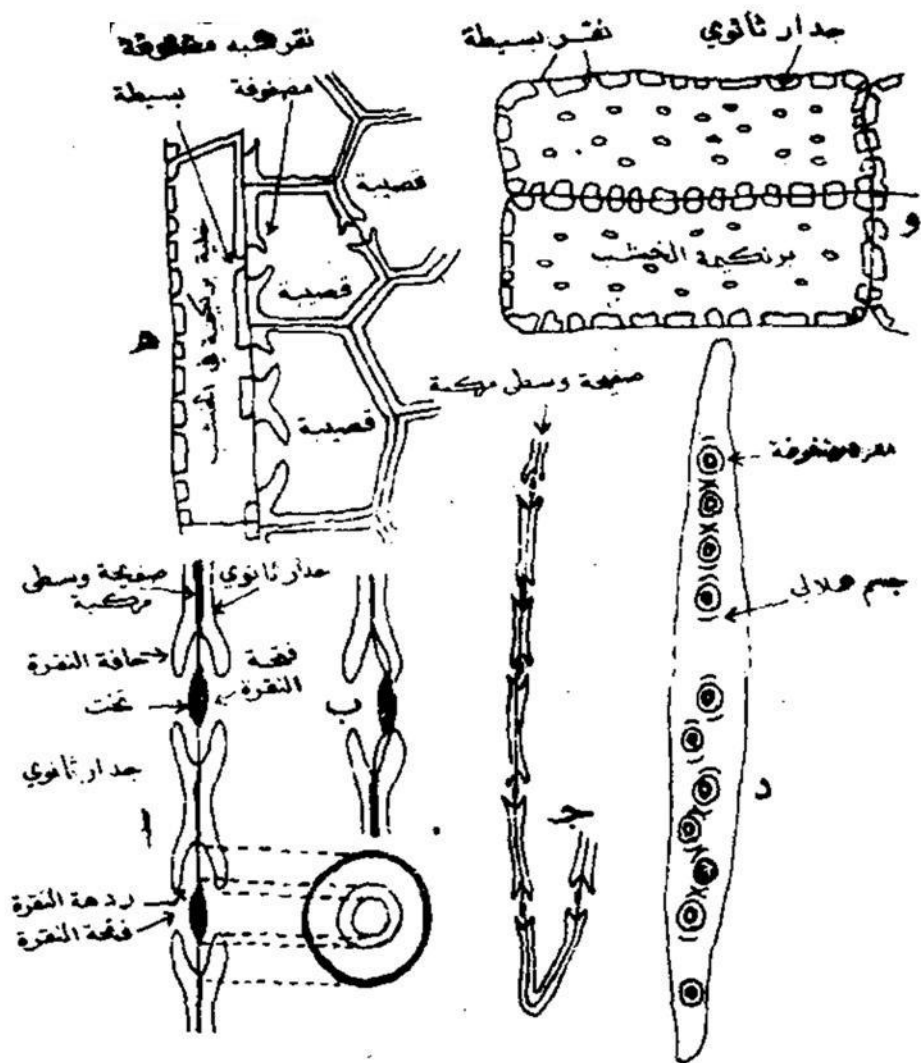 نقر شبه مضفوفة
بسيطة
مضفوفة
قصيبة
قصيبة
قصيبة
هـ
نقر بسيطة
جدار ثانوي
برنكيمة الخشب
و
صفيحة وسطى مركبة
جسم هلالي
د
جـ
صفيحة وسطى
مركبة
جدار ثانوي
حافة النقرة
فتحة
النقرة
تخت
ب
جدار ثانوي
أ
ردهة النقرة
فتحة النقرة